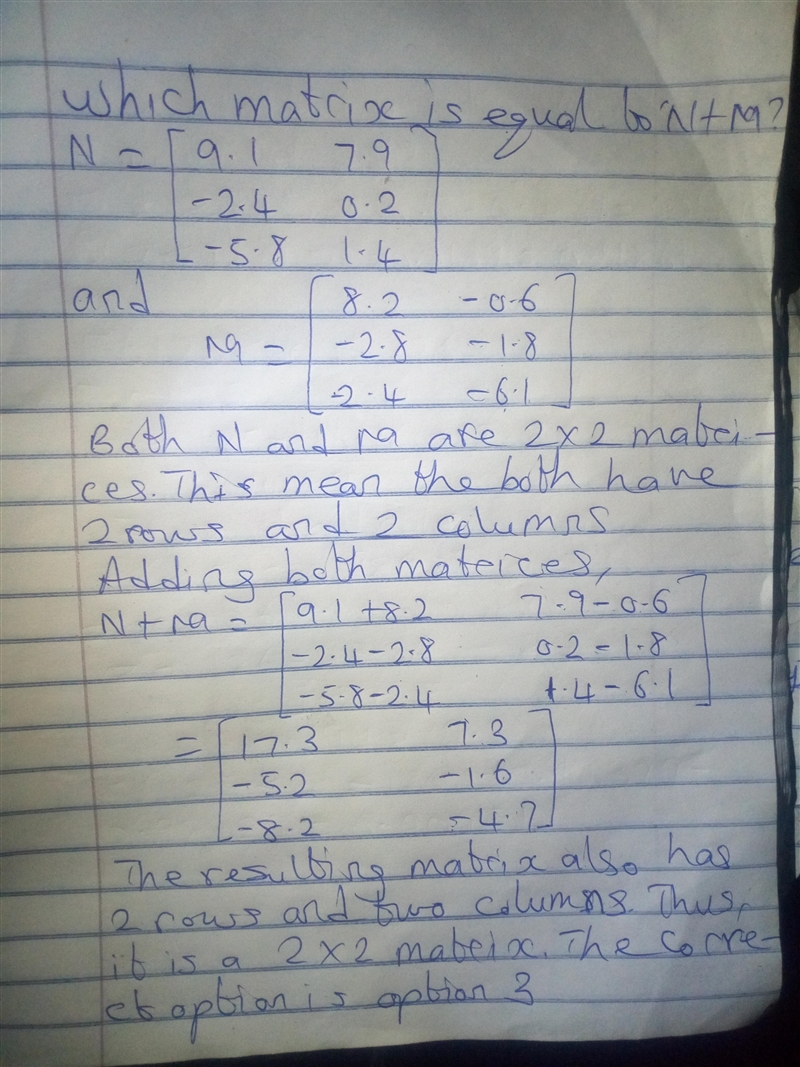 Which matrix is equal to N+M?
N = [9.1 7.9
-2.4 0.2
-5.8 1.4]
and [8.2 -0.6
M = -2.8 -1.8
-2.4 -6.1]
Both N and M are 2×2 matri-
ces. This mean the both have
2 rows and 2 columns
Adding both matrices,
N+M = [9.1+8.2 7.9-0.6
-2.4-2.8 0.2-1.8
-5.8-2.4 1.4-6.1]
= [17.3 7.3
-5.2 -1.6
-8.2 -4.7]
The resulting matrix also has
2 rows and two columns. Thus,
it is a 2×2 matrix. The corre-
ct option is option 3